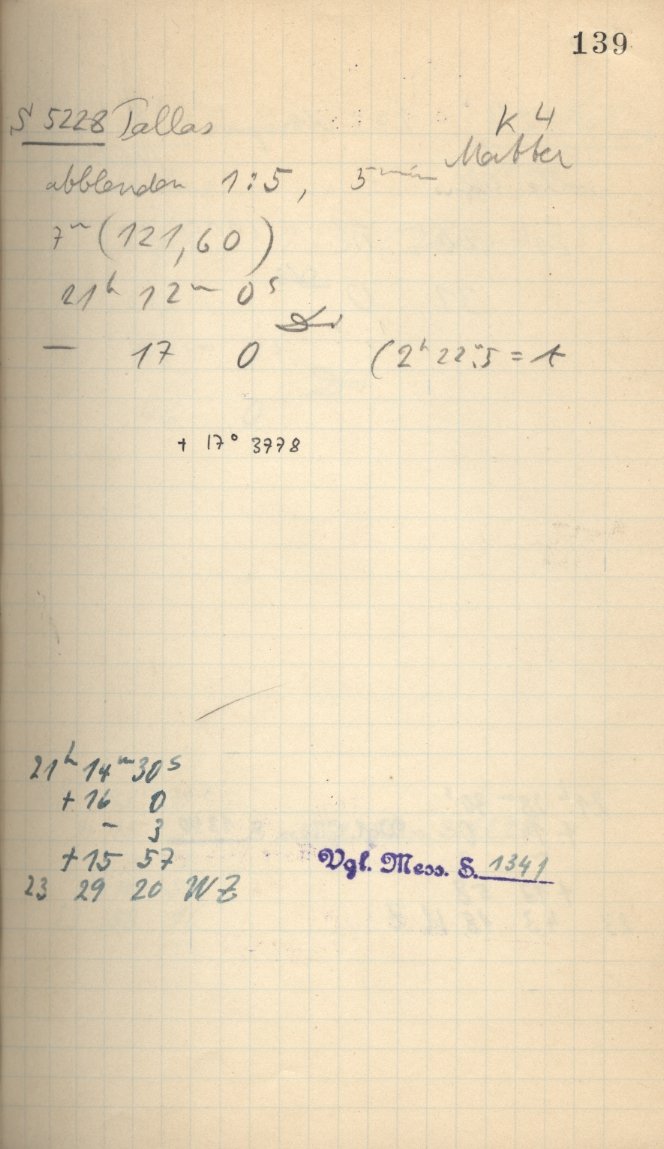 139
S 5228 Pallas K 4
Matter
abblenden 1:5, 5 min
7ᵐ (121,60)
21ʰ 12ᵐ 0ˢ
— 17 0 (2ʰ 22ᵐ,5 = t
+ 17° 3778
21ʰ 14ᵐ 30ˢ
+ 16 0
- 3
+ 15 57
Vgl. Mess. S. 1341
23 29 20 WZ